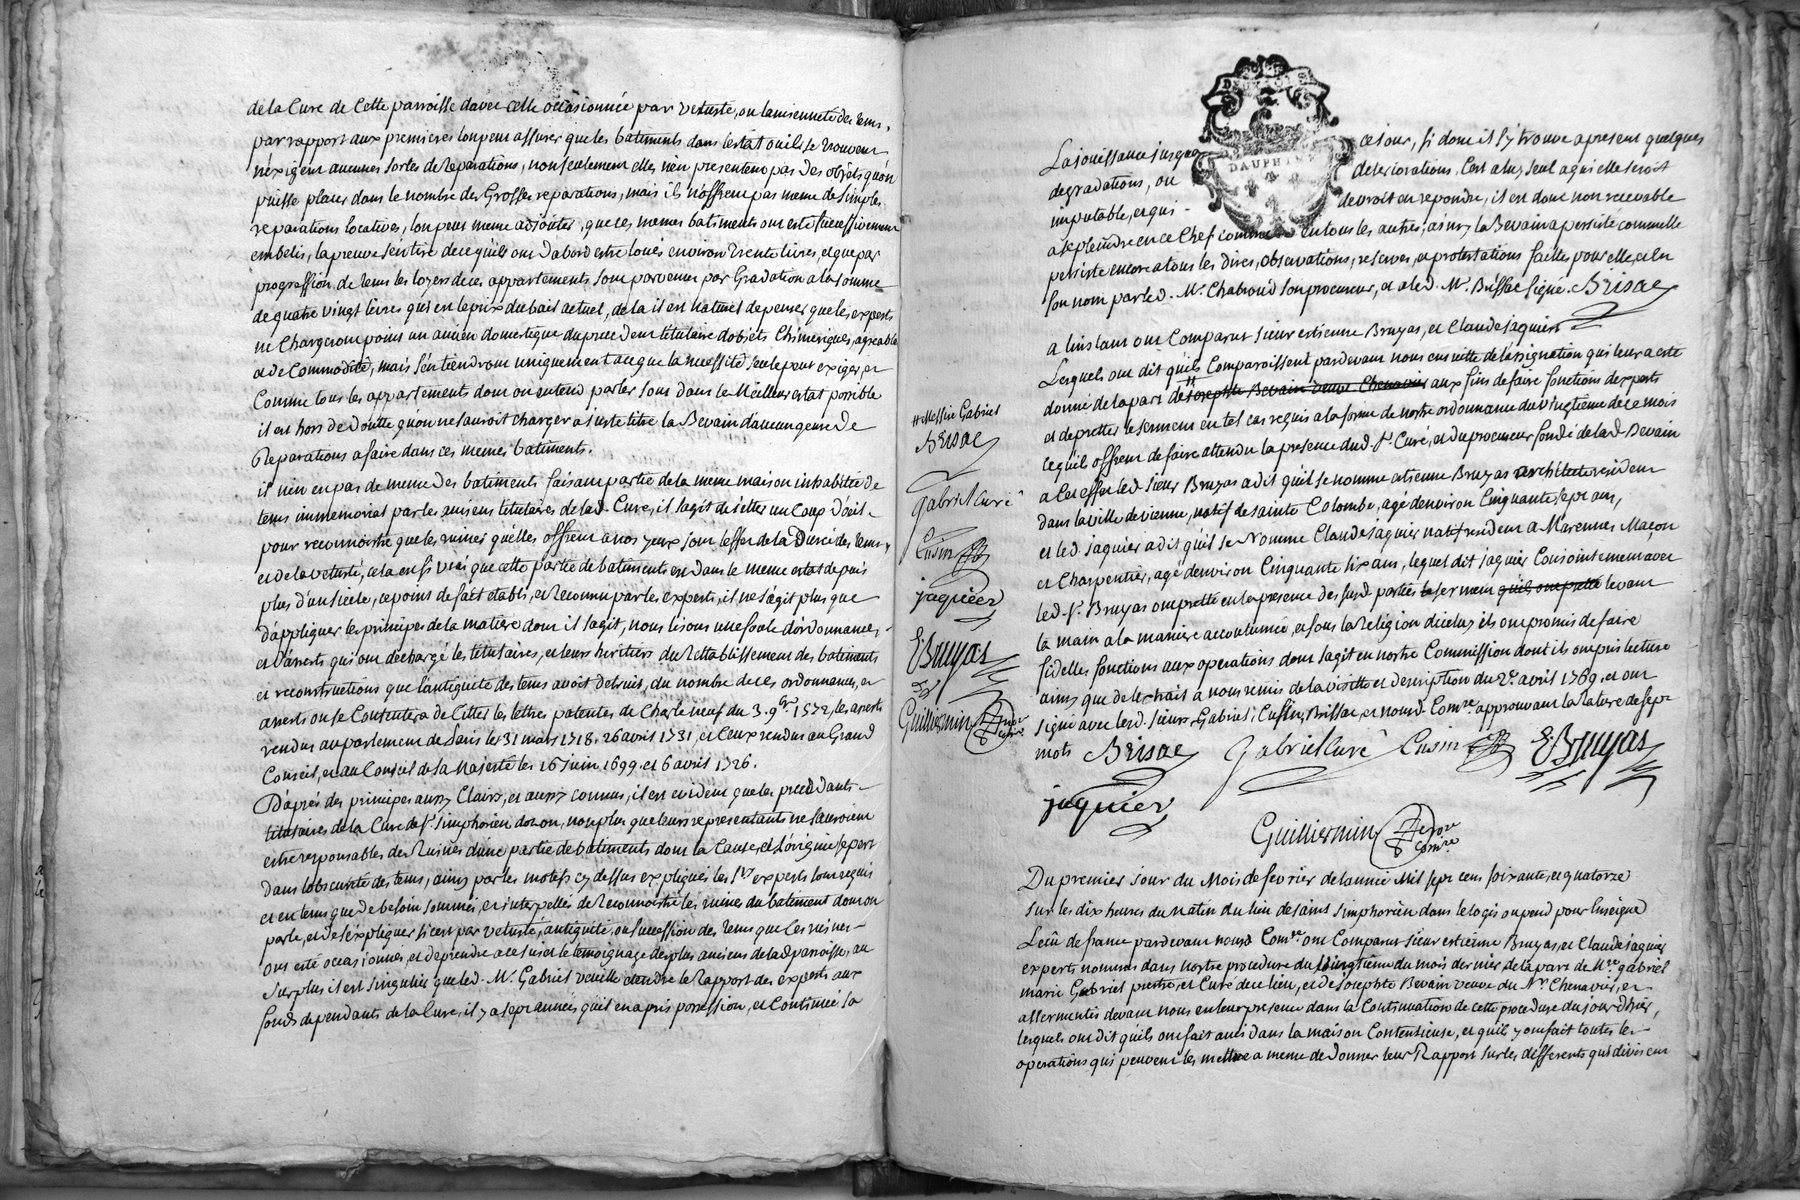 de la Cure de Cette parroisse d'avec celle occasionnée par vetusté, ou l'ancienneté des tems,
par rapport aux premieres l'on peut assurer que les batiments dans l'estat ou ils se trouvent
n'exigent aucunes sortes de reparations, non seulement elles n'en presentent pas des objets qu'on
puisse placer dans le nombre des Grosses reparations, mais ils n'offrent pas meme de simples
reparations locatives, l'on peut meme adjouter, que ces memes batiments ont esté successivement
embelis, la preuve s'en tire de ce qu'ils ont d'abord estre loués environ trente livres, et que par
progression, de tems les loyers de ces appartements sont parvenus par Gradation a la somme
de quatre vingt livres qui en le prix du bail actuel, de la il est naturel de penser que les experts
ne Chargeront point un ancien domestique du precedent titulaire d'objets Chimeriques, agreable
et de Commodité, mais s'en tiendront uniquement a ce que la necessité seule peut exiger, et
Comme tous les appartements dont on entend parler sont dans le Meilleur estat possible
il est hors de Doutte qu'on ne sauroit charger a juste titre la Bevain d'aucun genre de
Reparations a faire dans ces memes batiments.
il n'en en pas de meme des batiments faisant partie de la meme maison inhabitée de
tems immemorial par les anciens titulaires de lad. Cure, il s'agit de jetter un Coup d'œil
pour reconnoitre que les ruines qu'elles offrent a nos yeux sont l'effet de la Durée des tems,
et de la vetusté, cela en si vrai que cette partie de batiments est dans le meme estat depuis
plus d'un siecle, ce point de fait etabli, et Reconnu par les experts, il ne s'agit plus que
d'appliquer les principes de la matiere dont il s'agit, nous lisons une foule d'ordonnances,
et d'arrests qui ont dechargé les titulaires, et leurs heritiers du Rettablissement des batiments
et reconstructions que l'antiquité des tems avoit detruits, du nombre de ces ordonnances, et
arrests on se Contentera de Citter les lettres patentes de Charle neuf du 3. 9bre 1572, les arrests
rendus au parlement de Paris les 31 mars 1718. 26 avril 1731, et Ceux rendus au Grand
Conseil, et au Conseil de sa Majesté les 16 Juin 1699. et 6 avril 1726.
D'aprés des principes aussy Clairs, et aussy connus, il est evident que les precedants
titulaires de la Cure de St. simphorien dozon, non plus que leurs representants ne sauroient
estre responsables des Ruines d'une partie de batiments dont la Cause, et l'origine se perd
dans l'obscurité des tems, ainsy par les motifs cy dessus expliqués les Srs experts sont requis
et en tems que de besoin sommés, et interpellés de Reconnoitre les ruines du batiment dont on
parle, et de s'expliquer si c'est par vetusté, antiquité, ou succession des tems que Ces ruines
ont esté occasionnées, et de prendre a ce sujet le temoignage des plus anciens de lad. parroisse, au
surplus il est singulier que led. Mr. Gabriel veuille etendre le Rapport des experts aux
fonds dependants de la Cure, il y a sept années qu'il en a pris possession, et Continué sa
DAUPHINÉ
La jouissance jusqua ce jour, si donc il s'y trouve a present quelques
degradations, ou deteriorations, C'est a luy seul a qui elle seroit
imputable, et qui devroit en repondre, il est donc non recevable
a se pleindre en ce Chef comme en tous les autres; ainsy la Bevain a persisté comme elle
persiste encore a tous les dires, observations, reserves, et protestations faittes pour elle, et en
son nom par led. Mr. Chabroud son procureur, et a led. Mr. Brissac signé. Brisac
a l'instant ont Comparut sieur estienne Bruyas, et Claude jaquier
Lesquels ont dit qu'ils Comparoissent pardevant nous ensuitte de l'assignation qui leur a esté
donné de la part de # josephte Bevain veuve Chenavier aux fins de faire fonctions d'experts
et de pretter le serment en tel cas requis a la forme de nostre ordonnance du vingtieme de ce mois
ce qu'ils offrent de faire attendu la presence dud. Sr. Curé, et du procureur fondé de lad. Bevain
a Cet effet led. sieur Bruyas a dit qu'il se nomme estienne Bruyas architecte resident
dans la ville de vienne, natif de sainte Colombe, agé d'environ Cinquante sept ans,
et led. jaquier a dit qu'il se Nomme Claude jaquier natif resident a Marennes Maçon
et Charpentier, agé d'environ Cinquante six ans, lequel dit jaquier Conjointement avec
led. Sr. Bruyas ont pretté en la presence des susd. parties le serment qu'ils ont pretté levant
la main a la maniere accoutumée, et sous la Religion d'iceluy ils ont promis de faire
fidelles fonctions aux operations dont s'agit en nostre Commission dont ils ont pris lecture
ainsy que de l'extrait a nous remis de la visitte et description du 2e. avril 1769, et ont
signé avec lesd. sieurs Gabriel, Cusin, Brissac, et nousd. Comre. approuvant la rature de sept
mots Brisac Gabriel curé Cusin E Bruyas
jaquier
Guilliermin
Comre
# Messire Gabriel
Brisac
Gabriel curé
Cusin
jaquier
E Bruyas
Guilliermin
Du premier jour du Mois de fevrier de l'année Mil sept cens soixante, et quatorze
sur les dix heures du matin du lieu de saint simphorien dans le logis ou pend pour Enseigne
L'ecu de france pardevant nousd. Comre. ont Comparut sieur estienne Bruyas, et Claude jaquier
experts nommés dans nostre procedure du vingtieme du mois dernier de la part de Mre. gabriel
marie Gabriel prestre, et Curé de ce lieu, et de josephte Bevain veuve du Mr. Chenavier, et
assermentés devant nous en leur presence dans la Continuation de cette procedure du jour d'hier,
lesquels ont dit qu'ils ont fait ainsi dans la maison Contentieuse, et qu'il y ont fait toutes les
operations qui peuvent les mettre a meme de donner leur Rapport sur les differents qui divisent